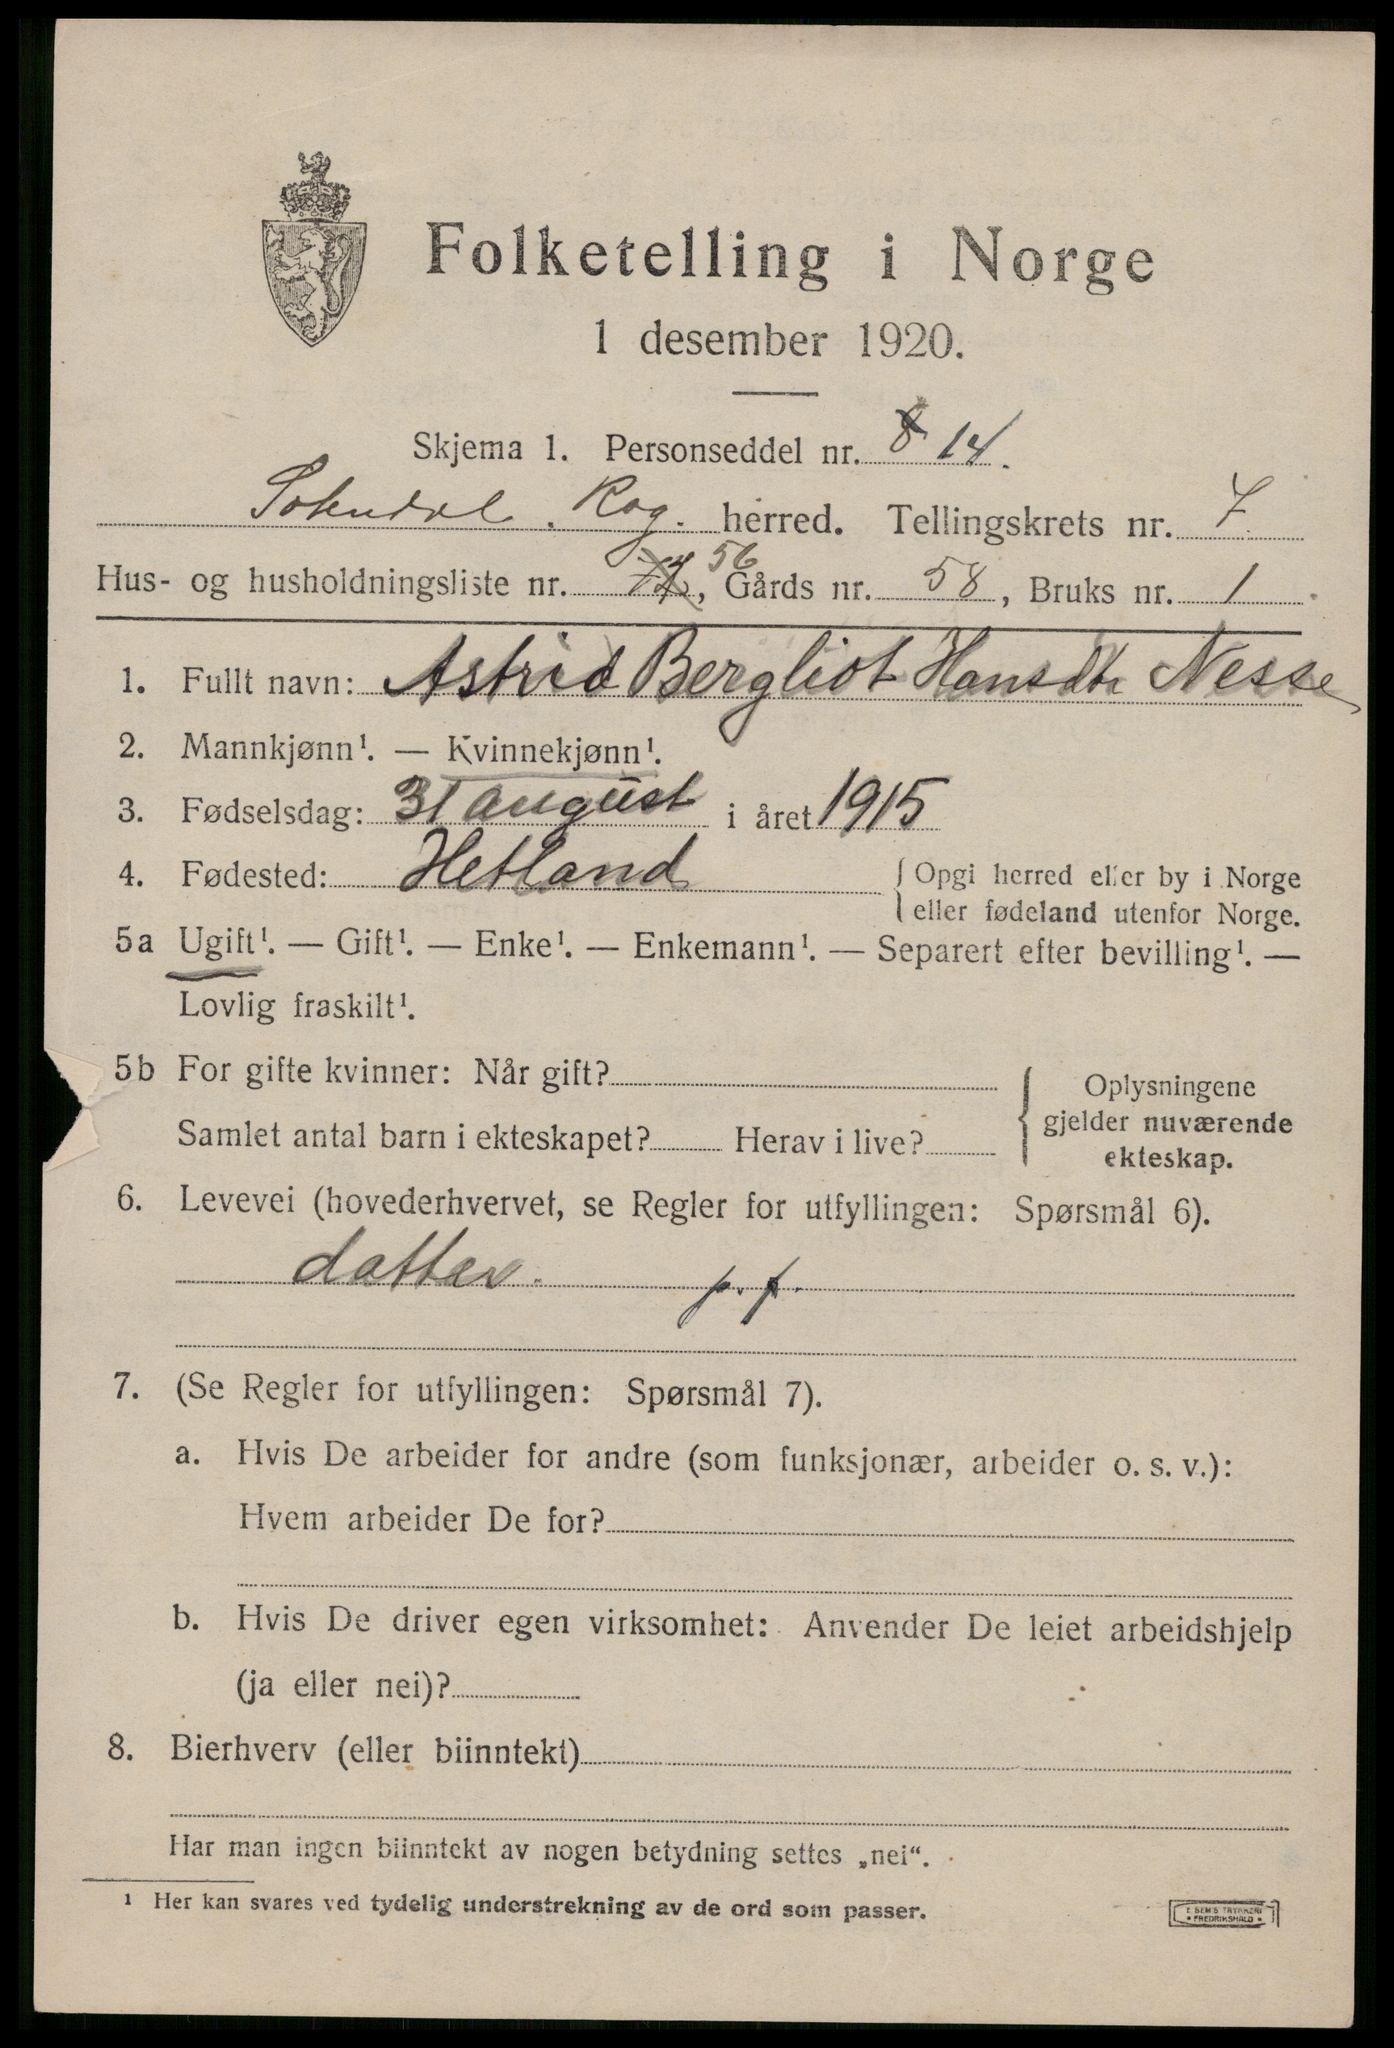 Folketelling i Norge
1 desember 1920.
Skjema 1. Personseddel nr. 8 14.
Sokndal. Rog. herred. Tellingskrets nr. 7
Hus- og husholdningsliste nr. 56, Gårds nr. 58, Bruks nr. 1
1. Fullt navn: Astrid Bergliot Hansdtr Nesse
2. Mannkjønn¹. — Kvinnekjønn¹.
3. Fødselsdag: 31 august i året 1915
4. Fødested: Hetland { Opgi herred eller by i Norge
eller fødeland utenfor Norge.
5a Ugift¹. — Gift¹. — Enke¹. — Enkemann¹. — Separert efter bevilling¹. —
Lovlig fraskilt¹.
5b For gifte kvinner: Når gift? { Oplysningene
gjelder nuværende
Samlet antal barn i ekteskapet? Herav i live?
ekteskap.
6. Levevei (hovederhvervet, se Regler for utfyllingen: Spørsmål 6).
datter. p. f.
7. (Se Regler for utfyllingen: Spørsmål 7).
a. Hvis De arbeider for andre (som funksjonær, arbeider o. s. v.):
Hvem arbeider De for?
b. Hvis De driver egen virksomhet: Anvender De leiet arbeidshjelp
(ja eller nei)?
8. Bierhverv (eller biinntekt)
Har man ingen biinntekt av nogen betydning settes „nei“.
¹ Her kan svares ved tydelig understrekning av de ord som passer.
E. SEM'S TRYKKERI
• FREDRIKSHALD •